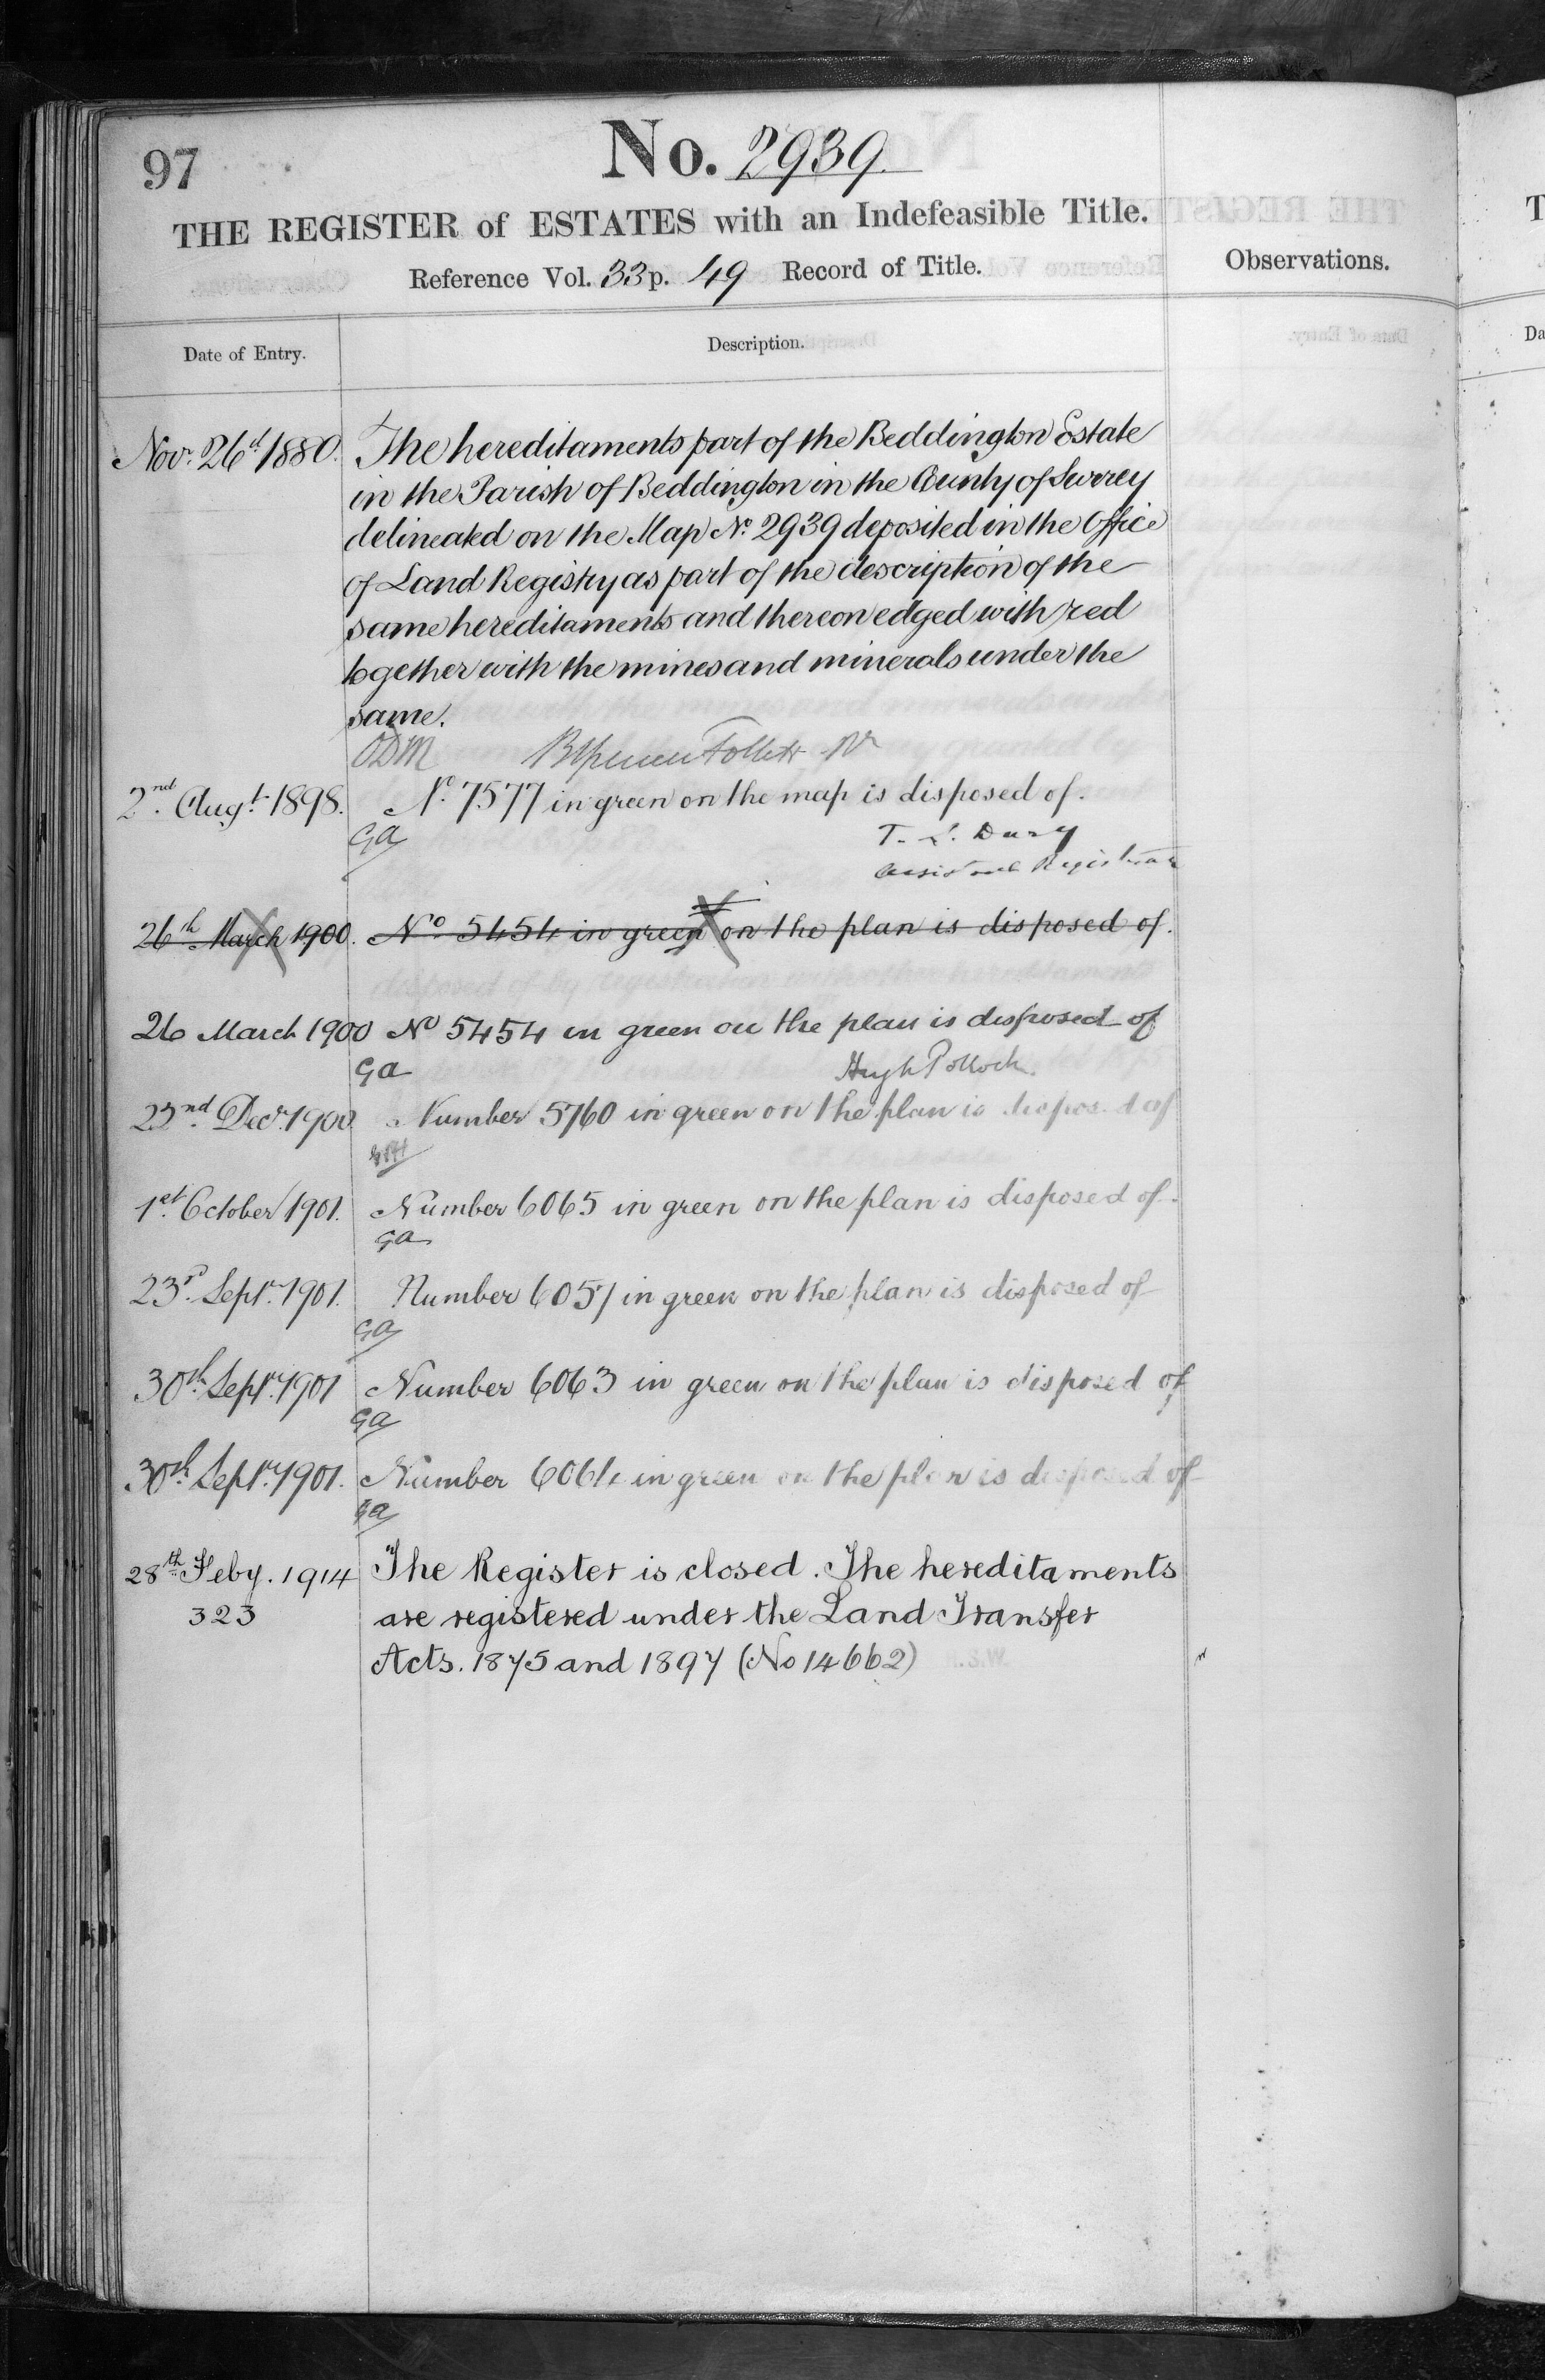 97
No. 2939.
THE REGISTER of ESTATES with an Indefeasible Title.
Reference Vol. 33 p. 49 Record of Title.
Observations.
Date of Entry.
Description.
Nov. 26th 1880. The hereditaments part of the Beddington Estate
in the Parish of Beddington in the County of Surrey
delineated on the Map No. 2939 deposited in the Office
of Land Registry as part of the description of the
same hereditaments and thereon edged with red
together with the mines and minerals under the
same.
ODM B Spencer Follett
2nd Augt. 1898. No. 7577 in green on the map is disposed of.
GA
T. L. Dury
Assistant Registrar
26th March 1900. No 5454 in green on the plan is disposed of.
26 March 1900 No 5454 in green on the plan is disposed of
GA Hugh Pollock.
22nd Decr. 1900 Number 5760 in green on the plan is disposed of
1st October 1901. Number 6065 in green on the plan is disposed of.
GA
23rd Septr. 1901. Number 6057 in green on the plan is disposed of
GA
30th Septr. 1901 Number 6063 in green on the plan is disposed of
GA
30th Septr. 1901. Number 6064 in green on the plan is disposed of
GA
28th Feby. 1914 The Register is closed. The hereditaments
323 are registered under the Land Transfer
Acts. 1875 and 1897 (No 14662)